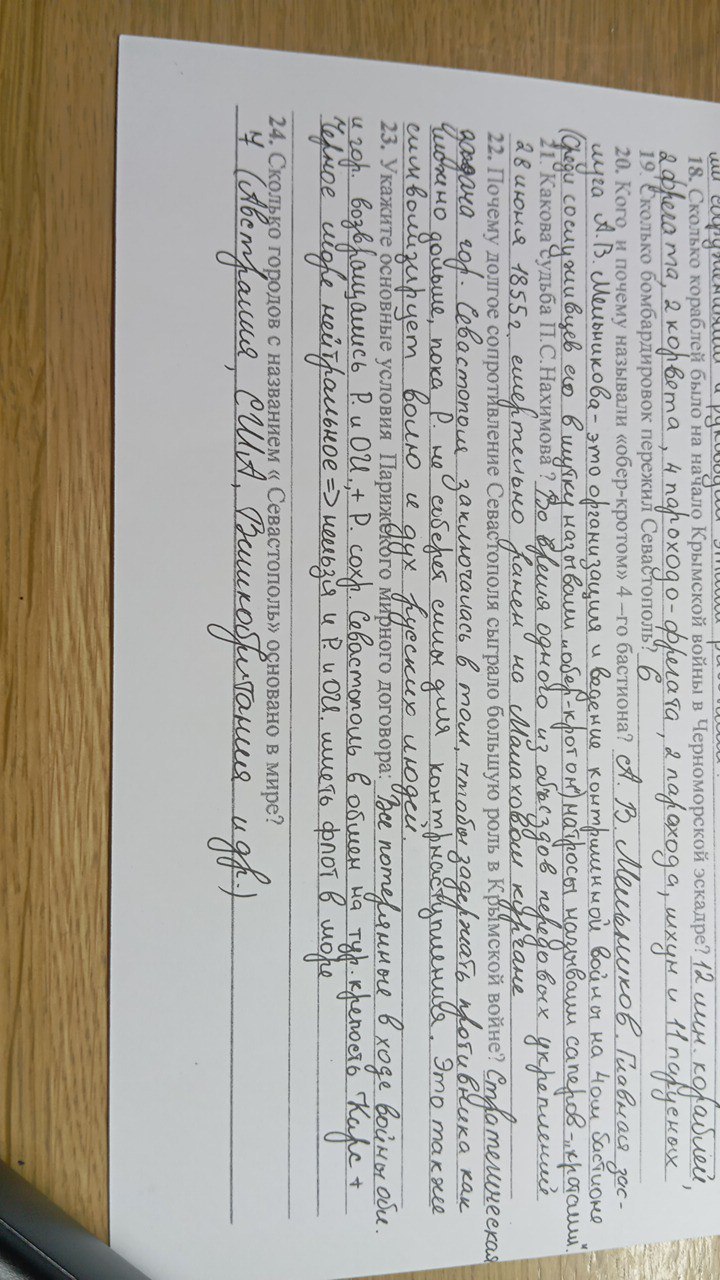 ми сооружениями и руководил этими работами.
18. Сколько кораблей было на начало Крымской войны в Черноморской эскадре? 12 лин. кораблей,
2 фрегата, 2 корвета, 4 пароходо-фрегата, 2 парохода, шхун и 11 парусных
19. Сколько бомбардировок пережил Севастополь? 6
20. Кого и почему называли «обер-кротом» 4 –го бастиона? А. В. Мельников. Главная зас-
луга А.В. Мельникова - это организация и ведение контрминной войны на 4ом бастионе
(Среди сослуживцев его в шутку называли „обер-кротом") матросы называли саперов-„кротами".
21. Какова судьба П.С.Нахимова ? Во время одного из объездов передовых укреплений
28 июня 1855г. смертельно ранен на Малаховом кургане
22. Почему долгое сопротивление Севастополя сыграло большую роль в Крымской войне? Стратегическая
задача гор. Севастополя заключалась в том, чтобы задержать противника как
можно дольше, пока Р. не соберет силы для контрнаступления. Это также
символизирует волю и дух русских людей.
23. Укажите основные условия Парижского мирного договора: Все потерянные в ходе войны обл.
и гор. возвращались Р. и ОИ., + Р. сохр. Севастополь в обмен на тур. крепость Карс +
Черное море нейтральное => нельзя и Р. и ОИ. иметь флот в море
24. Сколько городов с названием « Севастополь» основано в мире?
7 (Австралия, США, Великобритания и др.)